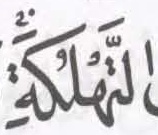 التَّهْلُكَةِ ۛ